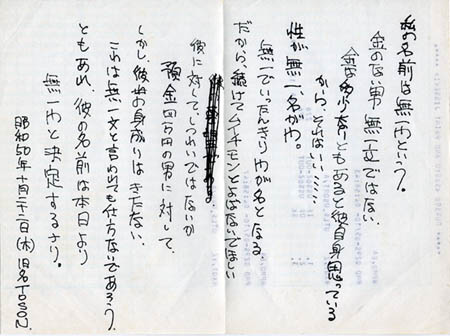 私の名前は無一也という。
金のない男 無一文ではない
金は多少なりともあると彼自身思っている
から、それはいい……
性が無一、名がや。
無一でいったんきりやが名となる
だから、続けてムイチモンとよばないでほしい
彼に対してしつれいではないか
預金四万円の男に対して、
しかし彼の身成りはきたない、
これは無一文と言われても仕方ないであろう。
ともあれ、彼の名前は本日より
無一やと決定するなり。
昭和50年十月二十二日(水)旧名TOSON